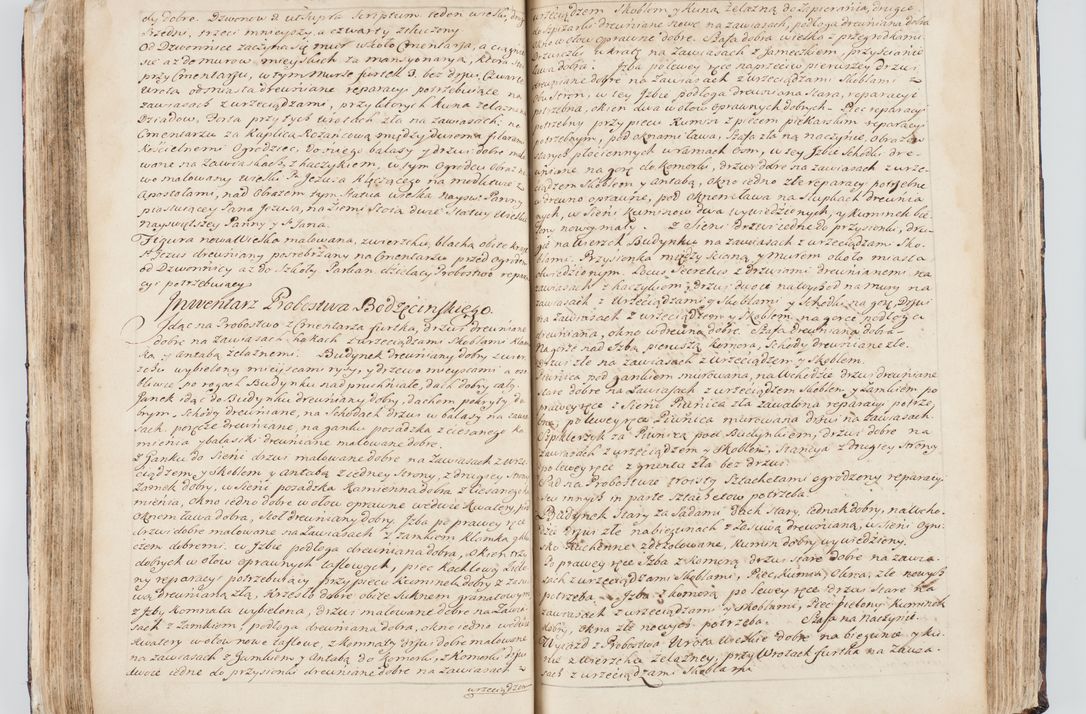 dy dobre. Dzwonow 3. ut Supra Scriptum. Ieden wielki, drugi
srzedni, trzeci mnieyszy, a czwarty stłuczony
Od Dzwonnice zaczyna się mur wkoło Cmentarza, a ciągnie
się aż do murow mieyskich za mansyonaryą, ktora stoi
przy Cmentarzu, w tym murze furtek 3. bez drzwi, Czwarte
wrota od miasta drewniane reparacyi potrzebuiące na
zawiasach z wrzeciądzami, przy ktorych kuna żelazna
Dziadow, Forta przy tych wrotach zła na zawiasach, na
Cmentarzu za Kaplicą Rozańcową między dwoma filarami
Kościelnemi Ogrodziec, do niego balasy y drzwi dobre malo
wane na zawiaskach, z haczykiem, w tym Ogrodcu Obraz no
wo malowany wielki P. Jezusa klęczącego na modlitwie z
Apostołami, nad Obrazem tym Statua wielka nayśw: Panny
piastuiącey Pana Jezusa, na ziemi stoią dwie Statuy wielkie
nayświętszey Panny y S. Jana.
Figura nowa wielka malowana, z wierzchu blachą obita krzyż
P. Jezus drewniany posrebrzany na Cmentarzu przed ogrodem
od Dzwonnicy aż do Szkoły Parkan dzielący Probostwo repara
cyi potrzebuiący
Inwentarz Probostwa Bodzęcinskiego.
Idąc na Probostwo z Cmentarza furtka, drzwi drewniane
dobre na zawiasach hakach z wrzeciądzami Skoblami klam
ką y antabą żelaznemi. Budynek drewniany dobry z wierz
chu wybielony mieyscami ryty, y drzewo mieyscami a oso
bliwie po rogach Budynku nadpruchniałe, dach dobry cały.
Ganek idąc do Budynku drewniany dobry, dachem pokryty do
brym, Schody drewniane, na Schodach drzwi w balasy na zawia
sach poręcze drewniane, na ganku posadzka z ciesanego ka
mienia y balasiki drewniane malowane dobre.
Z Ganku do Sieni drzwi malowane dobre na zawiasach z wrze
ciądzem, y Skoblem y antabą z iedney strony, z drugiey strony
zamek dobry, w Sieni posadzka kamienna dobra z ciesanego ka
mienia, okno iedno dobre w ołow oprawne we dwie kwatery, pod
Oknem ława dobra, Stoł drewniany dobry. Izba po prawey ręce
drzwi dobre malowane na zawiasach z zamkiem klamką y klu
czem dobremi, w Izbie podłoga drewniana dobra, okien trzy
dobrych w ołow oprawnych taflowych, piec kachlowy zielo
ny reparacyi potrzebuiący przy piecu kominek dobry z zasu
wą drewnianą złą, krzesło dobre obite suknem granatowym
z Izby komnata wybielona, drzwi malowane dobre na zawia
sach z zamkiem, podłoga drewniana dobra, okno iedno we dwie
kwatery w ołow nowe taflowe, z komnaty drzwi dobre malowane
na zawiasach z zamkiem y Antabą do komorki, z komorki drzwi
dwoie iedne do przysionku drewniane dobre na zawiasach z
wrzeciądzem
wrzeciądzem Skoblem y kuną żelazną do Zepsieńia, drugie
do Spiżarki drewniane nowe na zawiasach, podłoga drewniana dobra
okno w ołow oprawne dobre. Szafa dobra wielka z przegrodkami
drzwiczki w kratę na zawiasach z zameczkiem, przy ścianie
ława dobra. Izba po lewey ręce naprzeciw pierwszey, drzwi
drewniane dobre na zawiasach z wrzeciądzami Skoblami z
obu stron, w tey Izbie podłoga drewniana stara, reparacyi
potrzebna, okien dwa w ołow oprawnych dobrych. Piec reparacyi
potrzebny przy piecu kumin z piecem piekarskim reparacyi
potrzebnym, pod oknami ława, Szafa zła na naczynie, Obrazow
starych płociennych w ramach osm, w tey Izbie Schodki dre
wniane na gorę do komorki, drzwi dobre na zawiasach z wrze
ciądzem Skoblem y antabą, okno iedno złe reparacyi potrzebne
w drewno oprawne, pod oknem ława na słupkach drewnia
nych, w Sieni kuminow dwa wywiedzionych, y kuminek bie
lony nowy mały. Z Sieni drzwi iedne do przysionku, dru
gie na wierzch Budynku na zawiasach z wrzeciądzami Sko
blami. Przysionka między ścianą y murem około miasta
obwiedzionym. Locus Secretus z drzwiami drewnianemi na
zawiasach z haczykiem; drzwi dwoie na wychod na mury na
zawiasach z wrzeciądzami y Skoblami y Schodki na gorę drzwi
na zawiasach z wrzeciądzem y Skoblem, na gorce podłoga
drewniana, okno w drewno dobre. Szafa drewniana dobra
Na gorze nad Izbą pierwszą komora, Schody drewniane złe.
Drzwi złe na zawiasach z wrzeciądzem y Skoblem.
Piwnica pod gankiem murowana, na wchodzie drzwi drewniane
stare dobre na zawiasach z wrzeciądzem Skoblem, y zamkiem po
prawey ręce z Sieni Piwnica zła zawalona reparacyi potrze
bne, po lewey ręce Piwnica murowana drzwi na zawiasach.
Szpiklerzyk za Piwnicą pod Budynkiem, drzwi dobre na
zawiasach z wrzeciądzem y Skoblem, Stancya z drugiey strony
po lewey ręce z gruntu zła bez drzwi.
Sad na Probostwie troisty Sztachetami ogrodzony reparacyi
ku innych in parte sztachetow potrzeba.
Budynek stary za Sadami Dach stary, iednak dobry, na wcho
dzie drzwi złe na biegunach z zasuwą drewnianą, w Sieni Ogni
sko kuchenne zdezolowane, kumin dobry wywiedziony.
Po prawey ręce Izba z komorą drzwi stare dobre na zawia
sach z wrzeciądzami Skoblami, Piec, kumin, Okna, złe nowych
potrzeba. Izba z komorą po lewey ręce drzwi stare na
zawiasach z wrzeciądzami y Skoblami, Piec y ielony kuminek
dobry, okna złe nowych potrzeba. Szafa na naczynie.
Wyiazd z Probostwa Wrota wielkie dobre na biegunie, y ku
nie z wierzchu żelazney, przy Wrotach furtka na zawia
sach z wrzeciądzami Skoblami